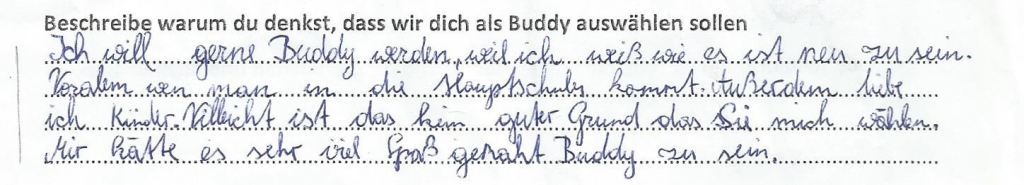 Beschreibe warum du denkst, dass wir dich als Buddy auswählen sollen
Ich will gerne Buddy werden, weil ich weiß wie es ist neu zu sein.
Voralem wen man in die Hauptschule kommt. Außerdem liebe
ich Kinder. Villeicht ist das kein guter Grund das Sie mich wählen.
Mir hätte es sehr viel Spaß gemaht Buddy zu sein.